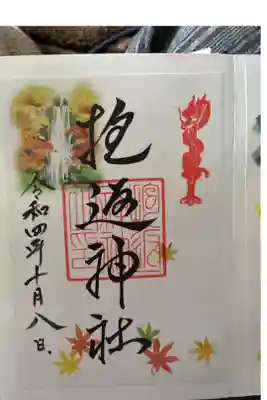 抱返神社
令和四年十月八日